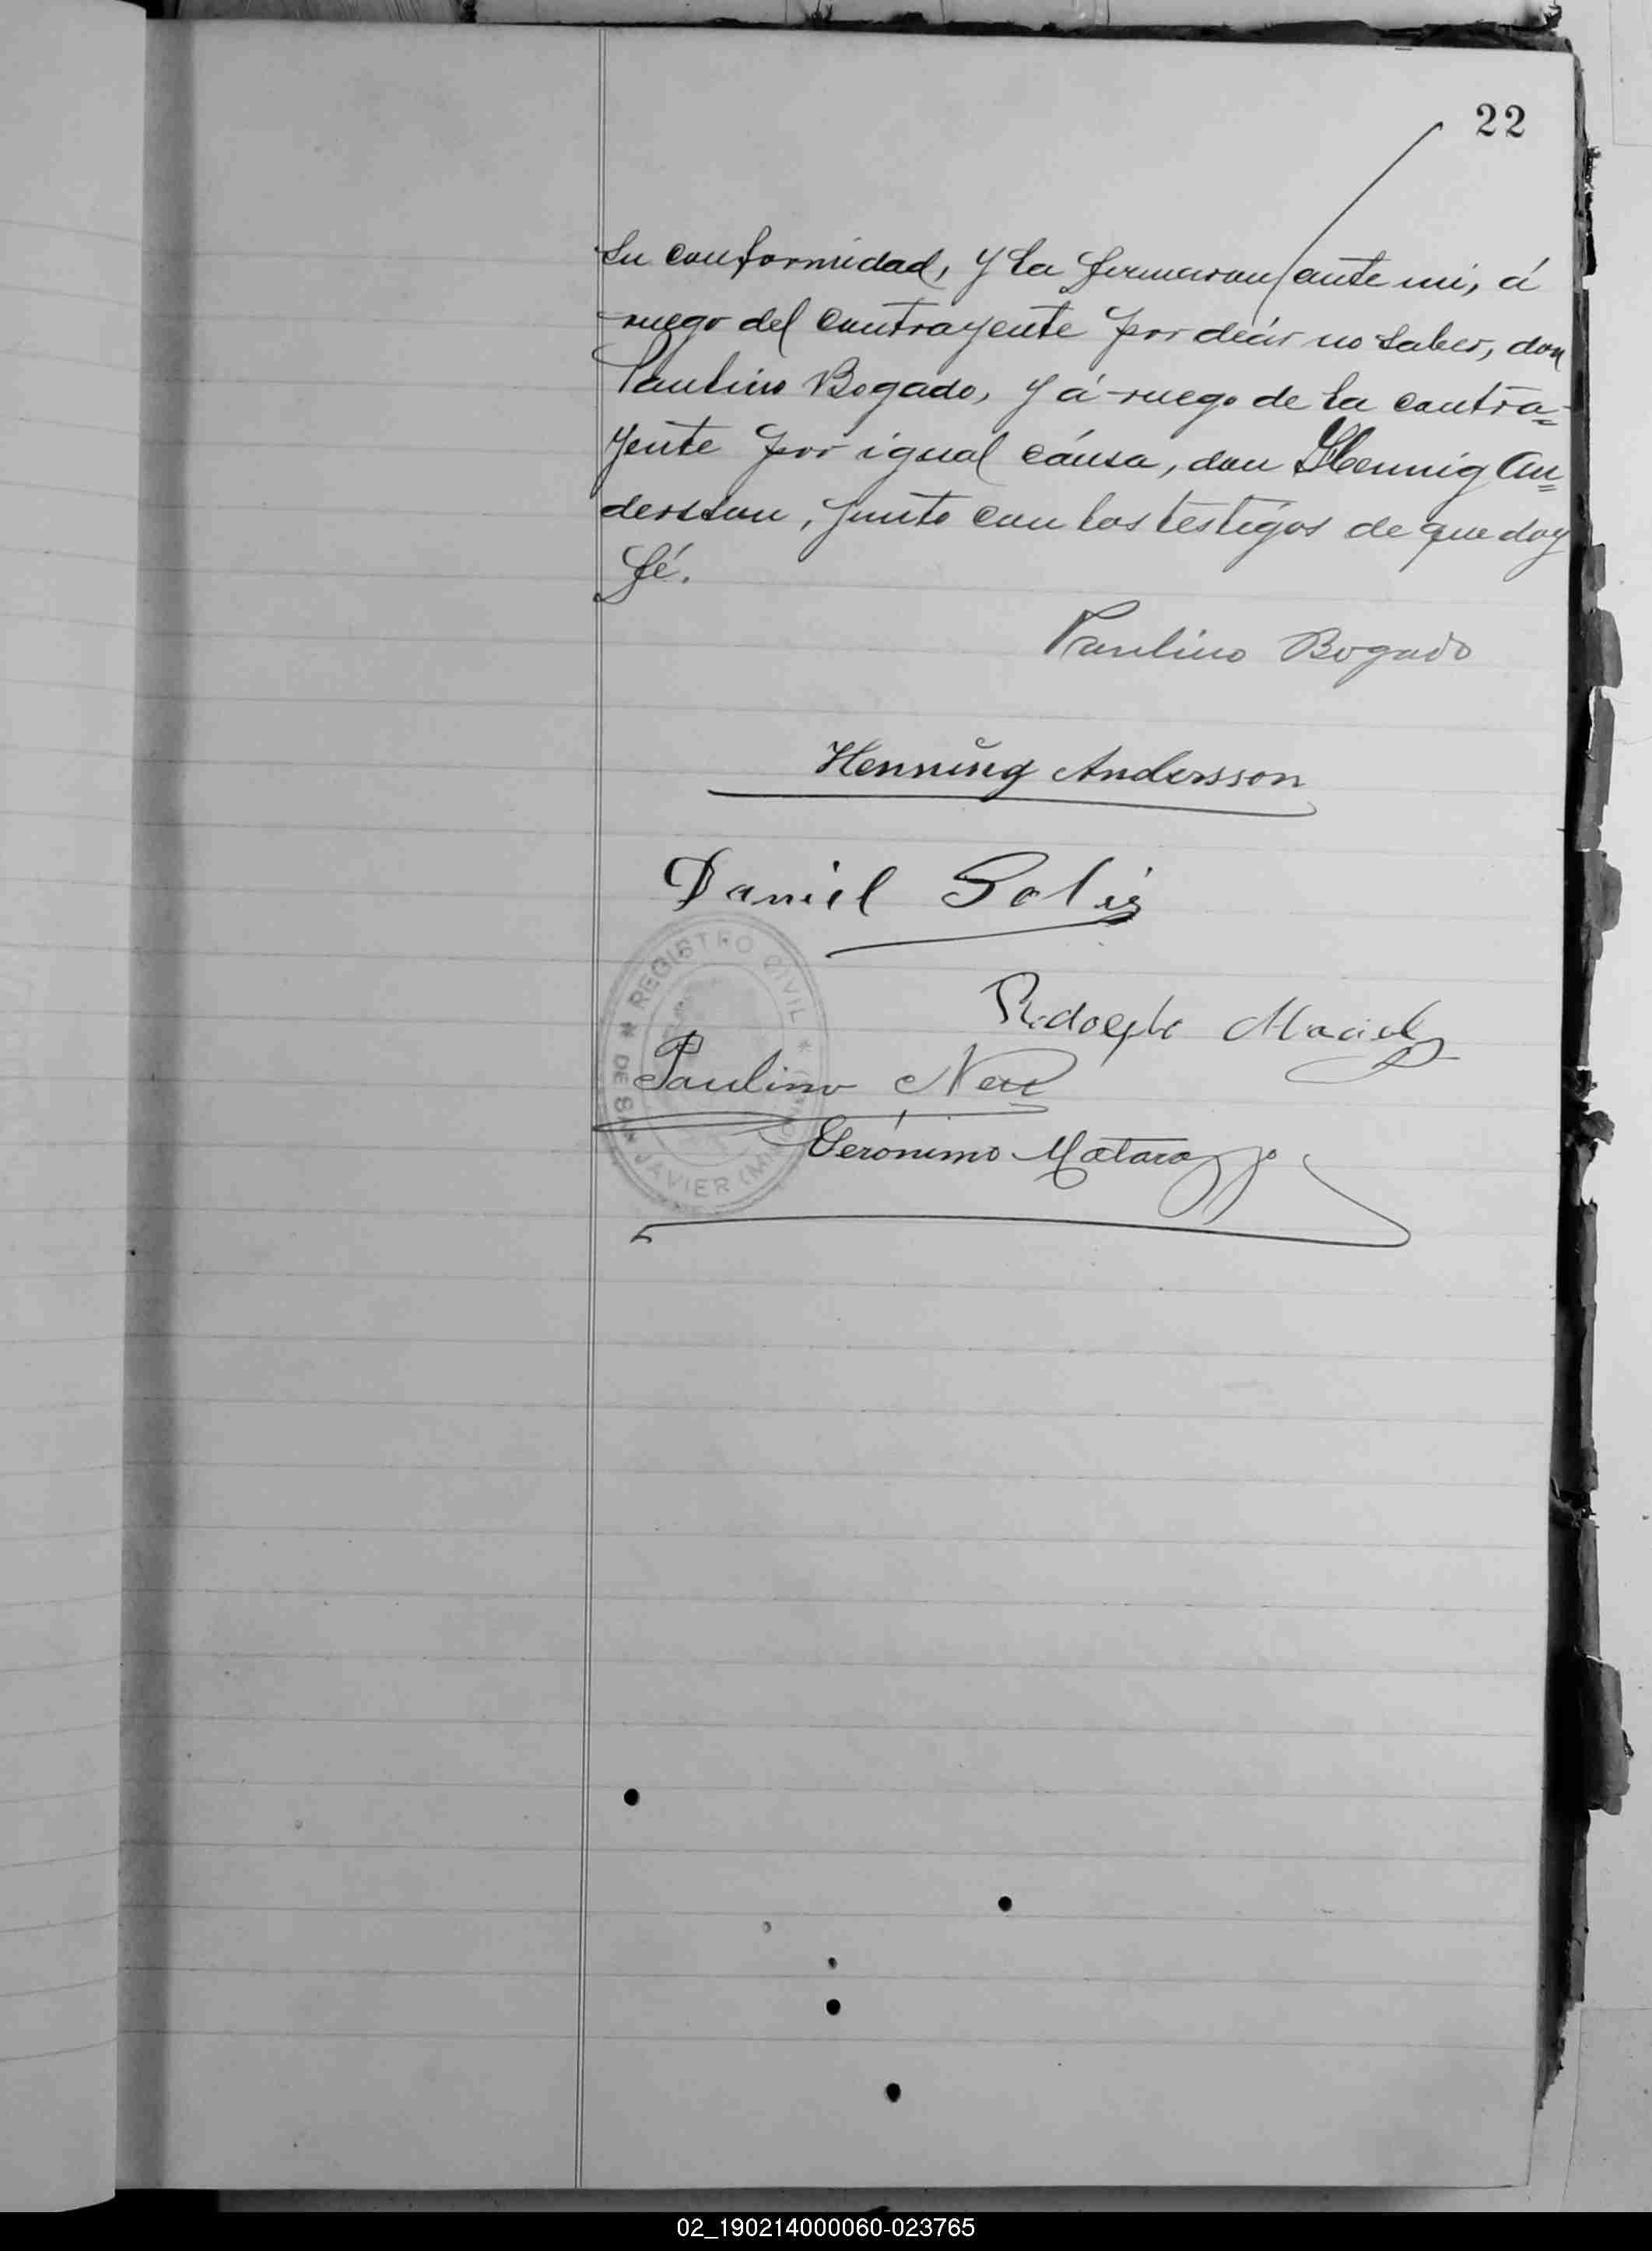 22
su conformidad, y la firmaron ante mi, á
ruego del contrayente por decir no saber, don
Paulino Bogado, y á ruego de la contra=
yente por igual cáusa, don Hennig An=
dersson, junto con los testigos de que doy
fé.
Paulino Bogado
Henning Andersson
Daniel Solis
REGISTRO CIVIL
Rodolfo Maciel
Paulino Neri
DE SAN JAVIER
Gerónimo Matarazzo
02_190214000060-023765